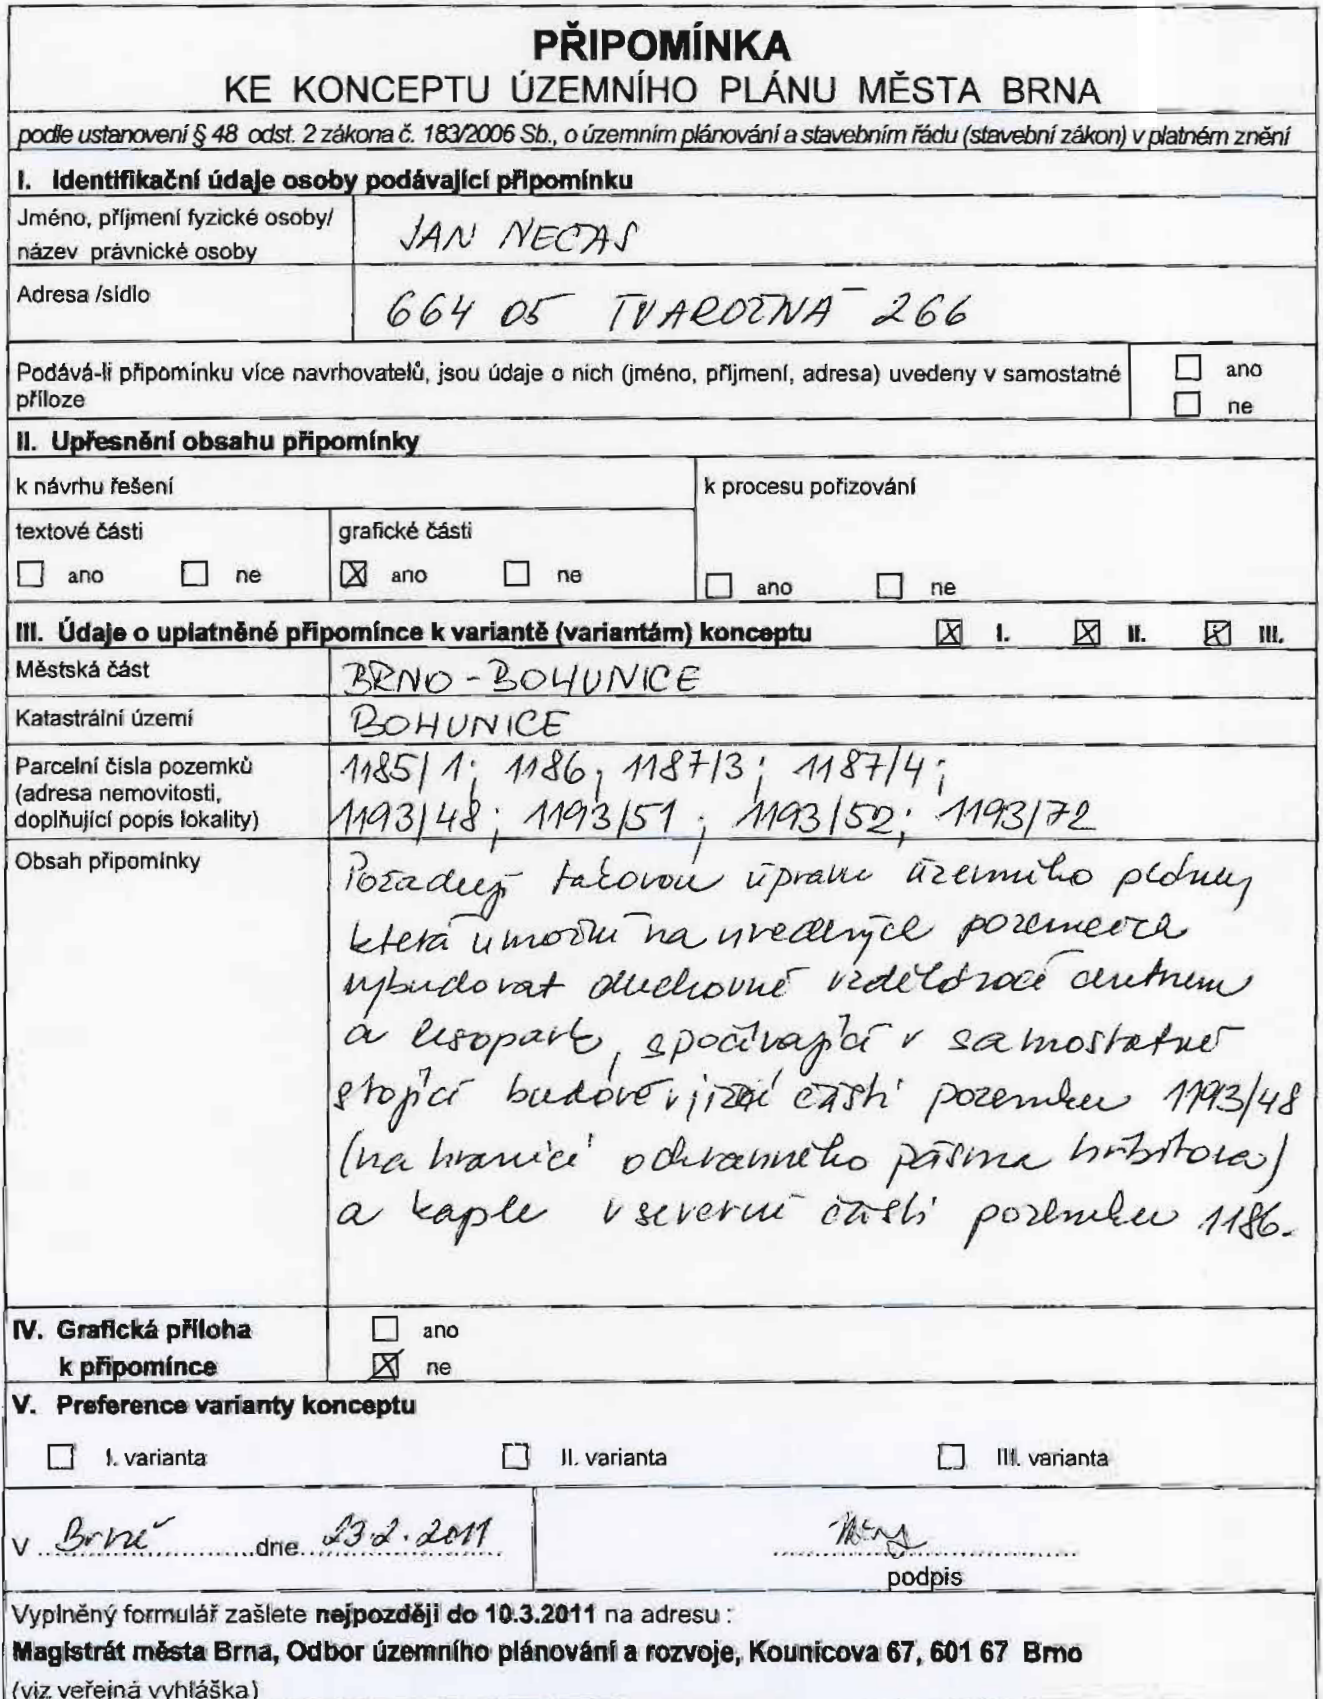 PŘIPOMÍNKA
KE KONCEPTU ÚZEMNÍHO PLÁNU MĚSTA BRNA
podle ustanovení § 48 odst. 2 zákona č. 183/2006 Sb., o územním plánování a stavebním řádu (stavební zákon) v platném znění
I. Identifikační údaje osoby podávající připomínku
Jméno, příjmení fyzické osoby/
název právnické osoby
JAN NECAS
Adresa /sídlo
664 05 TVAROŽNÁ 266
Podává-li připomínku více navrhovatelů, jsou údaje o nich (jméno, příjmení, adresa) uvedeny v samostatné
příloze
ano
ne
II. Upřesnění obsahu připomínky
k návrhu řešení
k procesu pořizování
textové části
grafické části
ano ne
X ano ne
ano ne
III. Údaje o uplatněné připomínce k variantě (variantám) konceptu X I. X II. X III.
Městská část
BRNO-BOHUNICE
Katastrální území
BOHUNICE
Parcelní čísla pozemků
(adresa nemovitosti,
doplňující popis lokality)
1185/1; 1186; 1187/3; 1187/4;
1193/48; 1193/51; 1193/52; 1193/72
Obsah připomínky
Požaduji takovou úpravu územního plánu,
která umožní na uvedených pozemcích
vybudovat duchovně vzdělávací centrum
a lesopark, spočívající v samostatně
stojící budově v jižní části pozemku 1193/48
(na hranici ochranného pásma hřbitova)
a kaple v severní části pozemku 1186.
IV. Grafická příloha
k připomínce
ano
X ne
V. Preference varianty konceptu
I. varianta II. varianta III. varianta
v Brně dne 23.2.2011
podpis
Vyplněný formulář zašlete nejpozději do 10.3.2011 na adresu :
Magistrát města Brna, Odbor územního plánování a rozvoje, Kounicova 67, 601 67 Brno
(viz veřejná vyhláška)